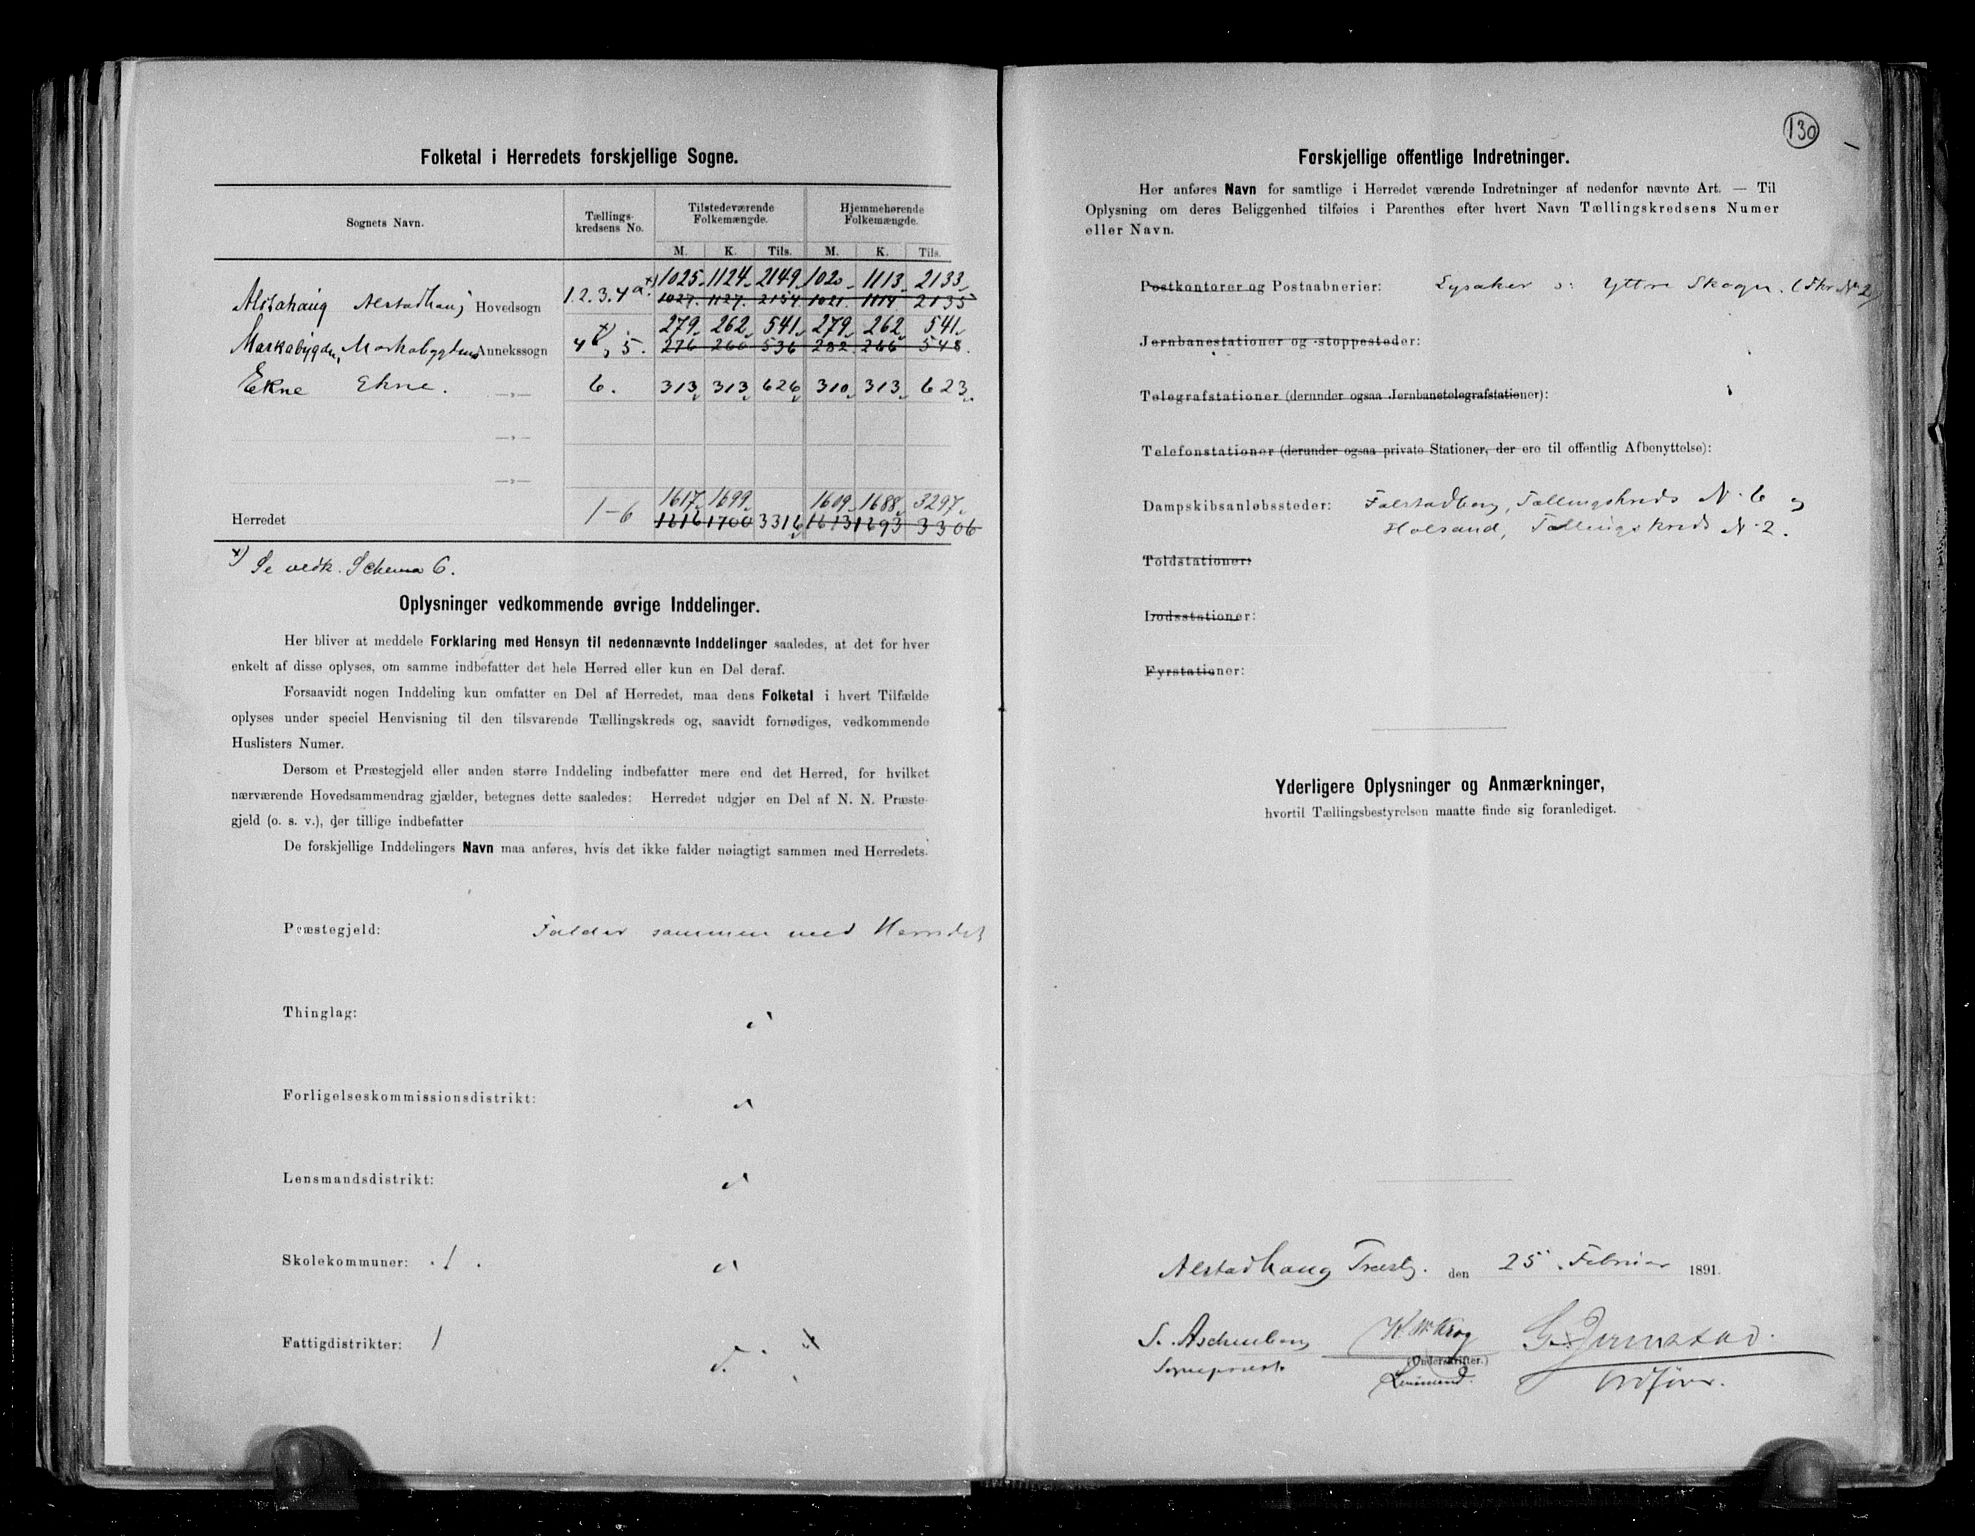 Folketal i Herredets forskjellige Sogne.
Sognets Navn. Tællings-kredsens No. Tilstedeværende Folkemængde. Hjemmehørende Folkemængde.
M. K. Tils. M. K. Tils.
1025 1124 2149 1020 1113 2133
Alstahaug Alstadhaug Hovedsogn 1.2.3.4a x) 1027 1127 2154 1021 1114 2135
279 262 541 279 262 541
Markabygden, Markabygdens Annekssogn 4b, 5. 276 260 536 282 266 548
Ekne Ekne. —„— 6. 313 313 626 310 313 623
—„—
—„—
1617 1699 1609 1688 3297
Herredet 1-6 1616 1700 3316 1613 1693 3306
x) Se vedk. Schema 6.
Oplysninger vedkommende øvrige Inddelinger.
Her bliver at meddele Forklaring med Hensyn til nedennævnte Inddelinger saaledes, at det for hver
enkelt af disse oplyses, om samme indbefatter det hele Herred eller kun en Del deraf.
Forsaavidt nogen Inddeling kun omfatter en Del af Herredet, maa dens Folketal i hvert Tilfælde
oplyses under speciel Henvisning til den tilsvarende Tællingskreds og, saavidt fornødiges, vedkommende
Huslisters Numer.
Dersom et Præstegjeld eller anden større Inddeling indbefatter mere end det Herred, for hvilket
nærværende Hovedsammendrag gjælder, betegnes dette saaledes: Herredet udgjør en Del af N. N. Præste-
gjeld (o. s. v.), der tillige indbefatter
De forskjellige Inddelingers Navn maa anføres, hvis det ikke falder nøiagtigt sammen med Herredets.
Præstegjeld: Falder sammen med Herredet
Thinglag: d
Forligelseskommissionsdistrikt: d
Lensmandsdistrikt: d
Skolekommuner: . 1 . d
Fattigdistrikter: 1 d.
130
Forskjellige offentlige Indretninger.
Her anføres Navn for samtlige i Herredet værende Indretninger af nedenfor nævnte Art. — Til
Oplysning om deres Beliggenhed tilføies i Parenthes efter hvert Navn Tællingskredsens Numer
eller Navn.
Postkontorer og Postaabnerier: Lysaker o: Yttre Skogn. (Tkr. No 2)
Jernbanestationer og -stoppesteder:
Telegrafstationer (derunder ogsaa Jernbanetelegrafstationer):
Telefonstationer (derunder ogsaa private Stationer, der ere til offentlig Afbenyttelse):
Dampskibsanløbsteder: Falstadberg, Tællingskreds No 6 og
Holsand, Tællingskreds No 2.
Toldstationer:
Lodsstationer:
Fyrstationer:
Yderligere Oplysninger og Anmærkninger,
hvortil Tællingsbestyrelsen maatte finde sig foranlediget.
Alstadhaug Præstg. den 25 Februar 1891.
S. Aschenberg K. W. Krog G. Jermstad.
(Underskrifter.)
Sogneprest Lensmand. Ordfører.